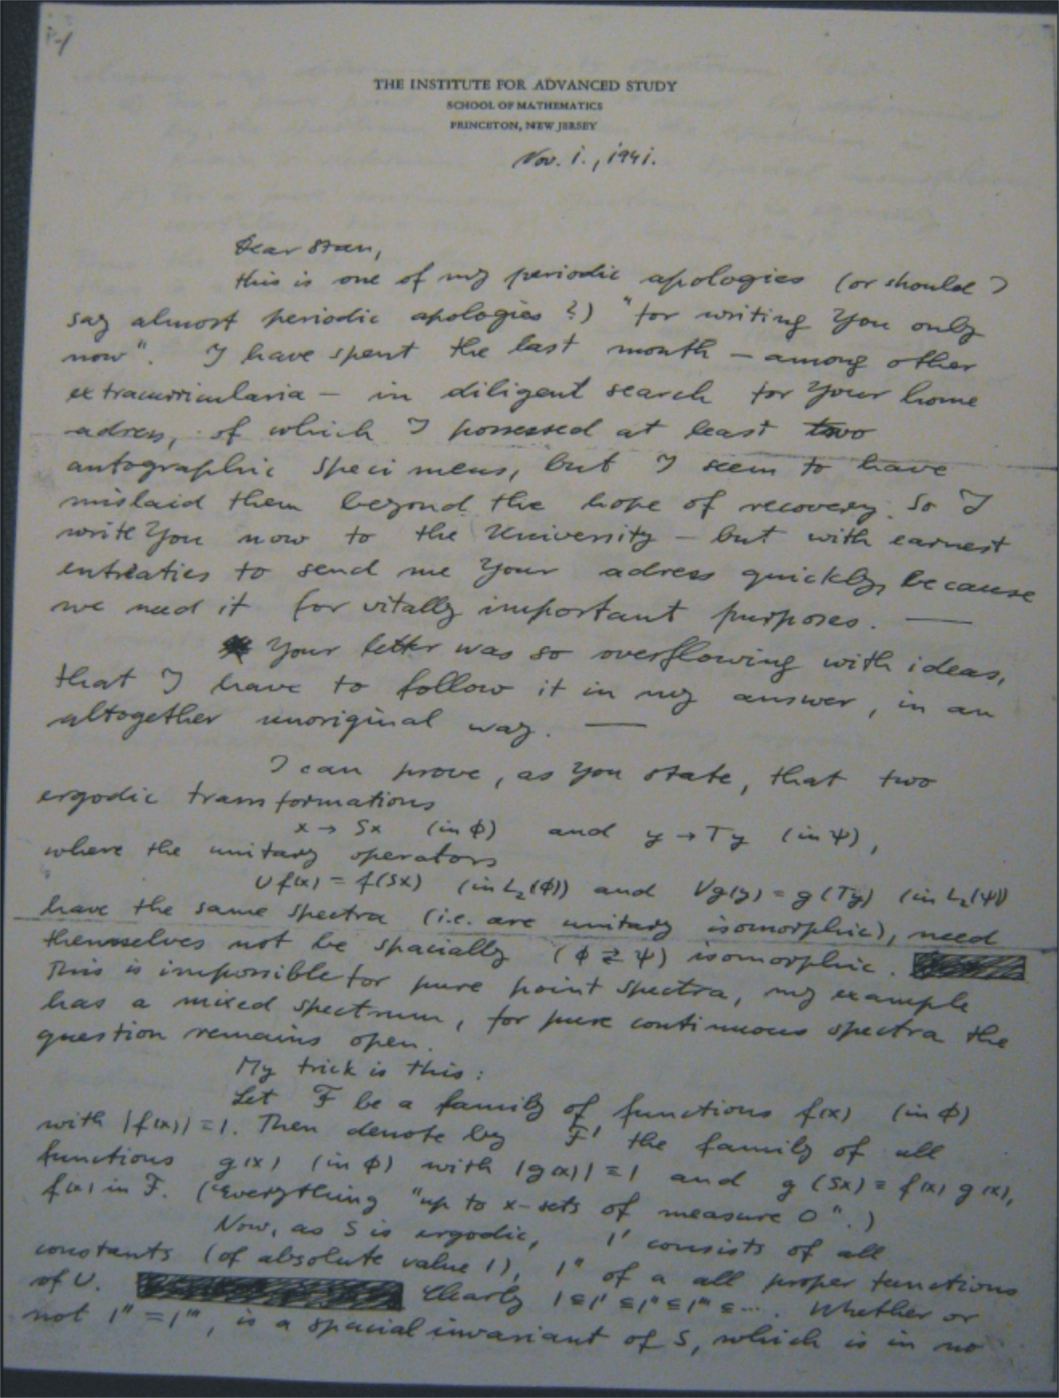 THE INSTITUTE FOR ADVANCED STUDY
SCHOOL OF MATHEMATICS
PRINCETON, NEW JERSEY
Nov. 1., 1941.
Dear Stan,
this is one of my periodic apologies (or should I
say almost periodic apologies ?) "for writing You only
now". I have spent the last month – among other
extracurricularia – in diligent search for Your home
adress, of which I possessed at least two
autographic specimens, but I seem to have
mislaid them beyond the hope of recovery. So I
write You now to the University – but with earnest
entreaties to send me Your adress quickly, because
we need it for vitally important purposes. —
Your letter was so overflowing with ideas,
that I have to follow it in my answer, in an
altogether unoriginal way. —
I can prove, as You state, that two
ergodic transformations
x → Sx (in ϕ) and y → Ty (in ψ),
where the unitary operators
Uf(x) = f(Sx) (in L₂(ϕ)) and Vg(y) = g(Ty) (in L₂(ψ))
have the same spectra (i.e. are unitary isomorphic), need
themselves not be spacially (ϕ ⇄ ψ) isomorphic.
This is impossible for pure point spectra, my example
has a mixed spectrum, for pure continuous spectra the
question remains open.
My trick is this:
Let F be a family of functions f(x) (in ϕ)
with |f(x)| = 1. Then denote by F' the family of all
functions g(x) (in ϕ) with |g(x)| = 1 and g(Sx) = f(x) g(x),
f(x) in F. (Everything "up to x-sets of measure 0".)
Now, as S is ergodic, 1' consists of all
constants (of absolute value 1), 1" of a all proper functions
of U. Clearly 1 ⊆ 1' ⊆ 1" ⊆ 1''' ⊆ ... . Whether or
not 1" = 1''', is a spacial invariant of S, which is in no